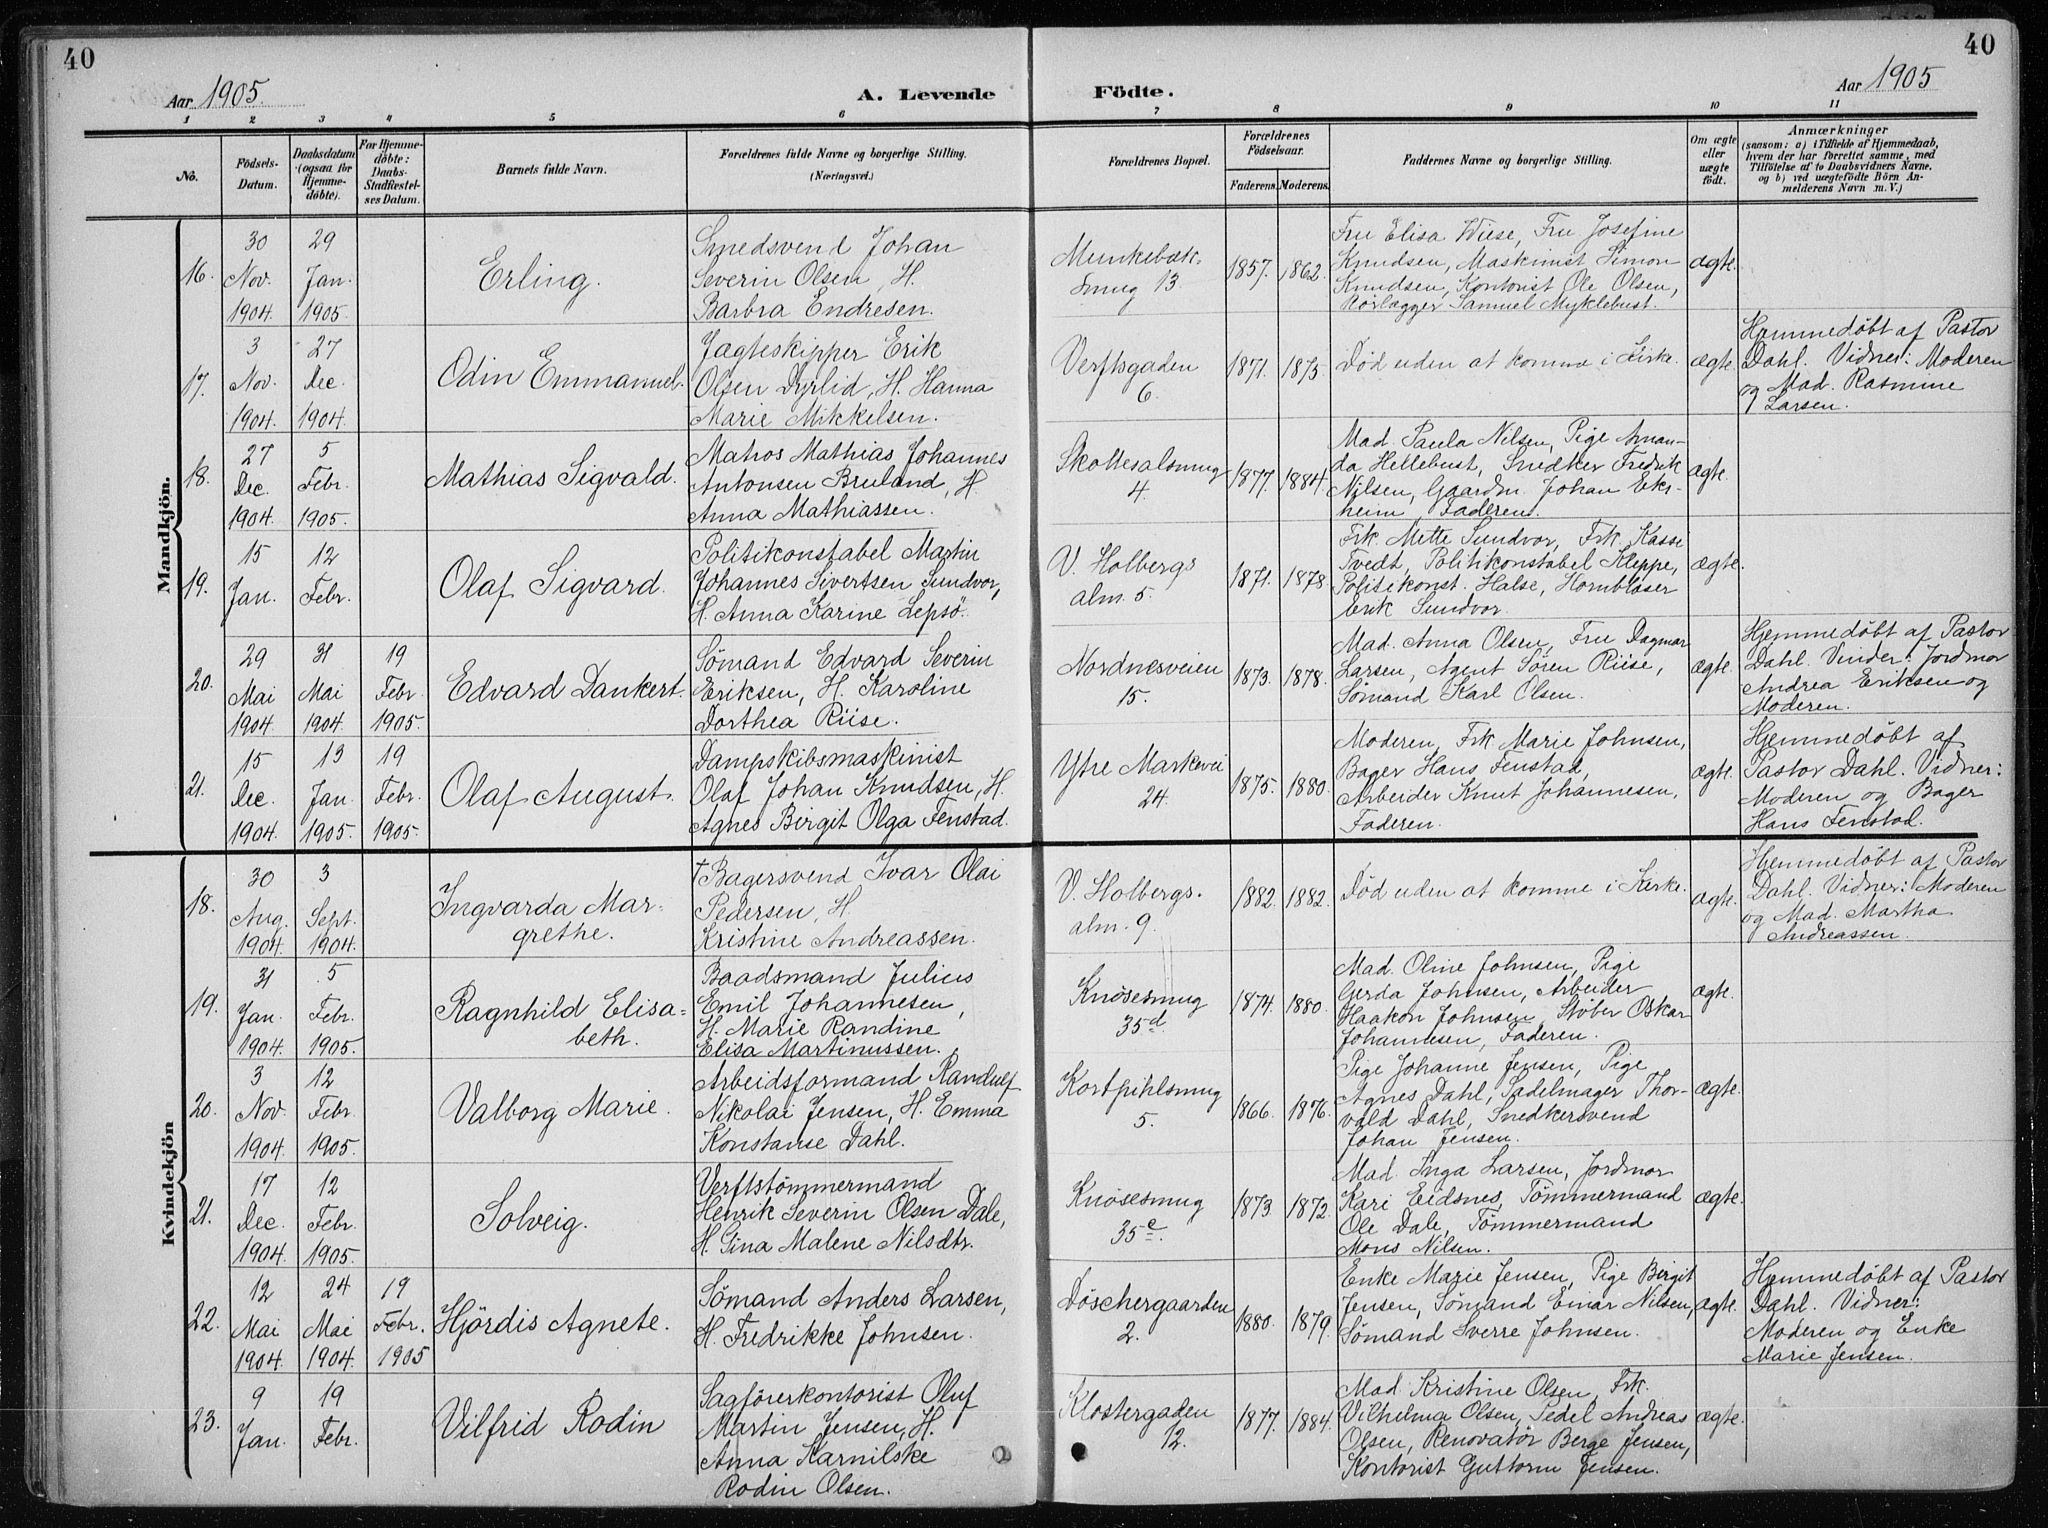 40
Aar 1905.
A. Levende
Födte.
Aar 1905
40
1 2 3 4 5 6 7 8 9 10 11
No.
Födsels-Datum.
Daabsdatum (ogsaa for Hjemmedöbte).
For Hjemmedöbte: Daabs-Stadfæstelses Datum.
Barnets fulde Navn.
Forældrenes fulde Navne og borgerlige Stilling.
(Næringsvei.)
Forældrenes Bopæl.
Forældrenes Födselsaar.
Faderens. Moderens.
Faddernes Navne og borgerlige Stilling.
Om ægte eller uægte födt.
Anmærkninger
(saasom: a) i Tilfælde af Hjemmedaab, hvem der har forrettet samme, med Tilföielse af to Daabsvidners Navne, og b) ved uægtefödte Börn Anmelderens Navn m. V.)
Mandkjön.
16.
30 Nov. 1904.
29 Jan. 1905.
Erling.
Smedsvend Johan
Severin Olsen, H.
Barbra Endresen.
Munkebæk-
smug 13.
1857. 1862.
Fru Elisa Wiese, Fru Josefine
Knudsen, Maskinist Simon
Knudsen, Kontorist Ole Olsen,
Rörlægger Samuel Myklebust.
ægte.
17.
3 Nov. 1904.
27 Dec. 1904.
Odin Emmanuel.
Jagteskipper Erik
Olsen Dyrlid, H. Hanna
Marie Mikkelsen.
Verftsgaden
6.
1871. 1873.
Död uden at komme i Kirke.
ægte.
Hjemmedöbt af Pastor
Dahl. Vidner: Moderen
og Mad. Rasmine
Larsen.
18.
27 Dec. 1904.
5 Febr. 1905.
Mathias Sigvald.
Matros Mathias Johannes
Antonsen Bruland, H
Anna Mathiassen.
Skottesalsmug
4.
1877. 1884.
Mad. Paula Nilsen, Pige Aman-
da Hellebust, Snedker Fredrik
Nilsen, Gaardm. Johan Eks-
heim, Faderen.
ægte.
19.
15 Jan.
12 Febr.
Olaf Sigvard.
Politikonstabel Martin
Johannes Sivertsen Sundvor,
H. Anna Karine Lepsö.
V. Holbergs
alm. 5.
1871. 1878.
Frk. Mette Sundvor, Frk. Kasse
Tvedt, Politikonstabel Kleppe,
Politikonst. Halse, Hornblåser
Erik Sundvor.
ægte.
20.
29 Mai 1904.
31 Mai 1904.
19 Febr. 1905.
Edvard Dankert.
Sömand Edvard Severin
Eriksen, H. Karoline
Dorthea Riise.
Nordnesveien
15.
1873. 1878.
Mad. Anna Olsen, Fru Dagmar
Larsen, Agent Sören Riise,
Sömand Karl Olsen.
ægte.
Hjemmedöbt af Pastor
Dahl. Vinder: Jordmor
Andrea Eriksen og
Moderen.
21.
15 Dec. 1904.
13 Jan. 1905.
19 Febr. 1905.
Olaf August.
Dampskibsmaskinist
Olaf Johan Knudsen, H.
Agnes Birgit Olga Fenstad.
Ytre Markevei
24.
1875. 1880.
Moderen, Frk Marie Johnsen,
Bager Hans Fenstad,
Arbeider Knut Johannesen,
Faderen.
ægte.
Hjemmedöbt af
Pastor Dahl. Vidner:
Moderen og Bager
Hans Fenstad.
Kvindekjön
18.
30 Aug. 1904.
3 Sept. 1904.
Ingvarda Mar-
grethe.
† Bagersvend Ivar Olai
Pedersen, H.
Kristine Andreassen.
V. Holbergs.
alm. 9.
1882. 1882.
Död uden at komme i Kirke.
ægte.
Hjemmedöbt af Pastor
Dahl. Vidner: Moderen
og Mad. Martha
Andreassen.
19.
31 Jan. 1904.
5 Febr. 1905.
Ragnhild Elisa-
beth.
Baadsmand Julius
Emil Johannesen,
H. Marie Randine
Elisa Martinussen.
Knösesmug
35d
1874. 1880.
Mad. Oline Johnsen, Pige
Gerda Johnsen, Arbeider
Haakon Johnsen, Stöber Oskar
Johannesen, Faderen.
ægte.
20.
3 Nov. 1904.
12 Febr. 1905.
Valborg Marie.
Arbeidsformand Randulf
Nikolai Jensen, H. Emma
Konstanse Dahl.
Kortpihlsmug
5.
1866. 1876.
Pige Johanne Jensen, Pige
Agnes Dahl, Sadelmager Thor-
vald Dahl, Snedkersvend
Johan Jensen.
ægte.
21.
17 Dec. 1904.
12 Febr. 1905.
Solveig.
Verftstömmermand
Henrik Severin Olsen Dale,
H. Gina Malene Nilsdtr.
Knösesmug
35e.
1873. 1872.
Mad. Inga Larsen, Jordmor
Kari Eidsnes, Tömmermand
Ole Dale, Tömmermand
Mons Nilsen.
ægte.
22.
12 Mai 1904.
24 Mai 1904.
19 Febr. 1905
Hjördis Agnete.
Sömand Anders Larsen,
H. Fredrikke Johnsen.
Döschergaarden
2.
1880. 1879.
Enke Marie Jensen, Pige Birgit
Jensen, Sömand Einar Nilsen,
Sömand Sverre Johnsen.
ægte.
Hjemmedöbt af Pastor
Dahl. Vidner:
Moderen og Enke
Marie Jensen.
23.
9 Jan.
19 Febr.
Vilfrid Rodin
Sagförerkontorist Oluf
Martin Jensen, H.
Anna Karnilske
Rodin Olsen.
Klostergaden
12.
1877. 1884.
Mad. Kristine Olsen, Frk.
Vilhelma Olsen, Pedel Andreas
Olsen, Renovatör Berge Jensen,
Kontorist Guttorm Jensen.
ægte.